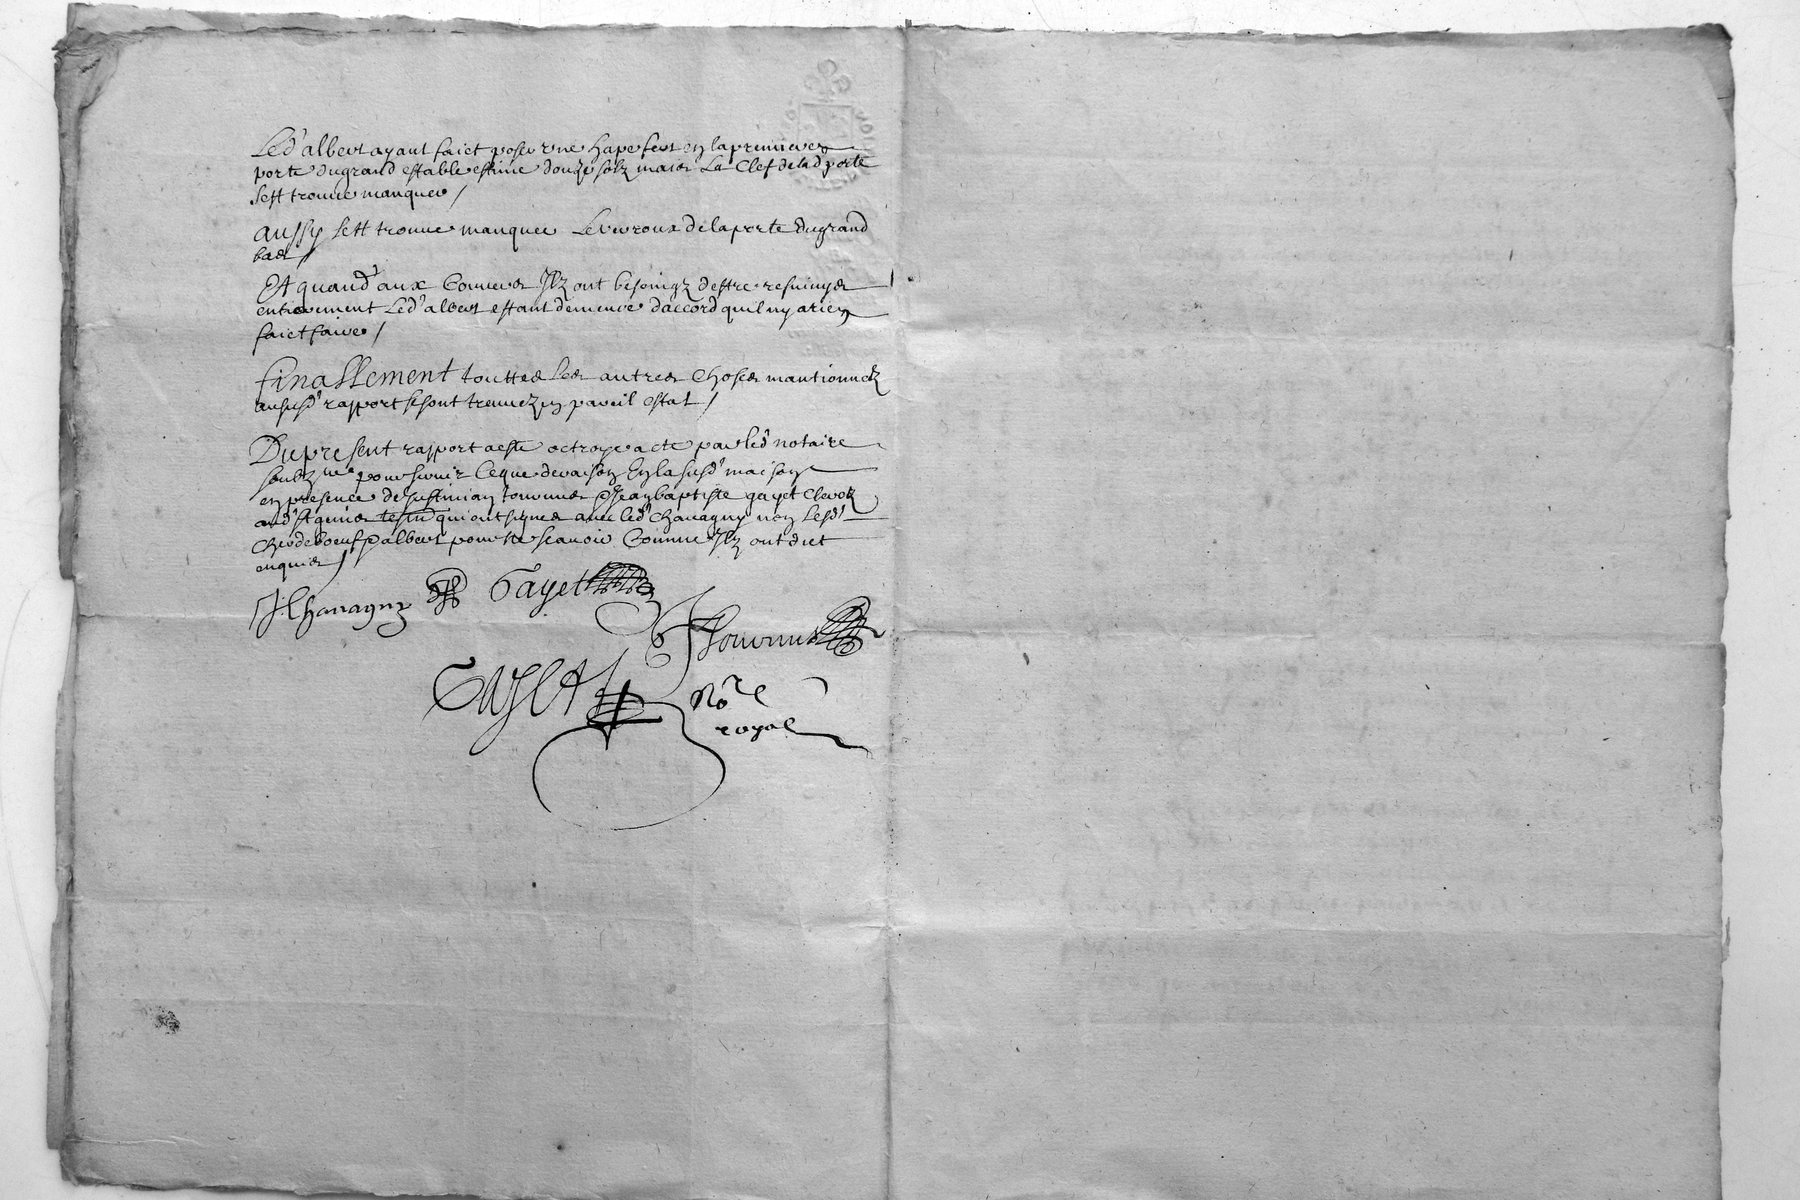 Led' albert ayant faict poser une hape fert en la premiere
porte du grand estable estime douze solz mais La Clef de lad porte
sest trouve manquer /
Aussy sest trouve manquer Le veroux de la porte du grand
bas /
Et quand aux Couvers Ilz ont besoingz destre
entierement Led' albert estant demeure d'accord quil ny a rien
faict faire /
finallement touttes Les autres Choses mantionnez
au susd' rapport se sont treuvez en pareil estat /
Du present rapport a este octroye acte par led' notaire
soubz ne pour servir Ceque de raison En la susd' maison
en presence de Justinian Jouvenes & Jean baptiste gayet Clercz
aud' St genies tesm qui ont signes avec led' Chavagny non Lesd'
& albert pour ne scavoir Comme Ilz ont dict
enquis /
J Chavagny Gayet
Jouvenes
Gayet
No re
royal